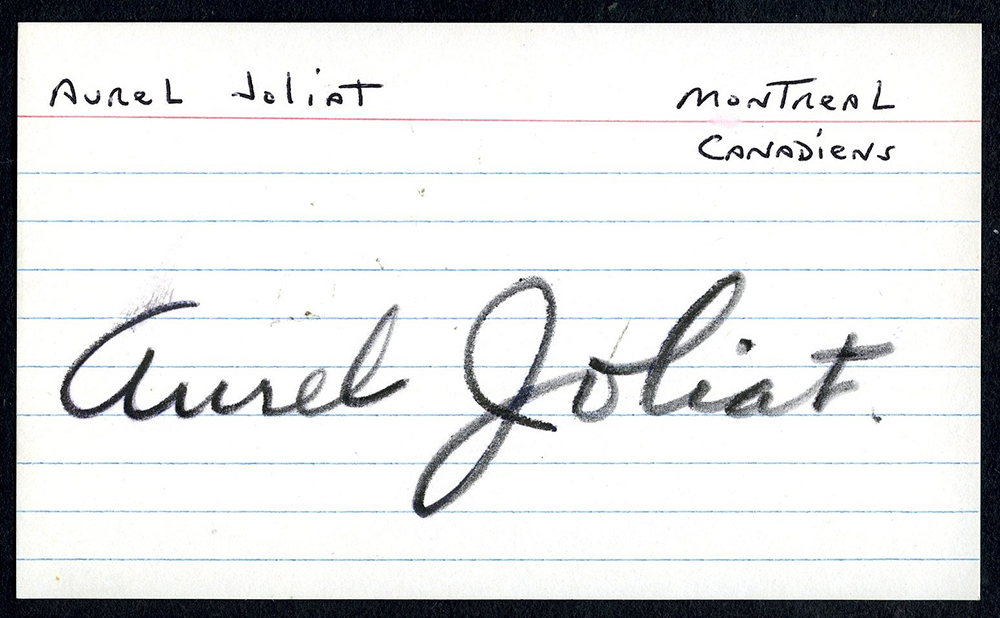 Aurel Joliat Montreal
Canadiens
Aurel Joliat.